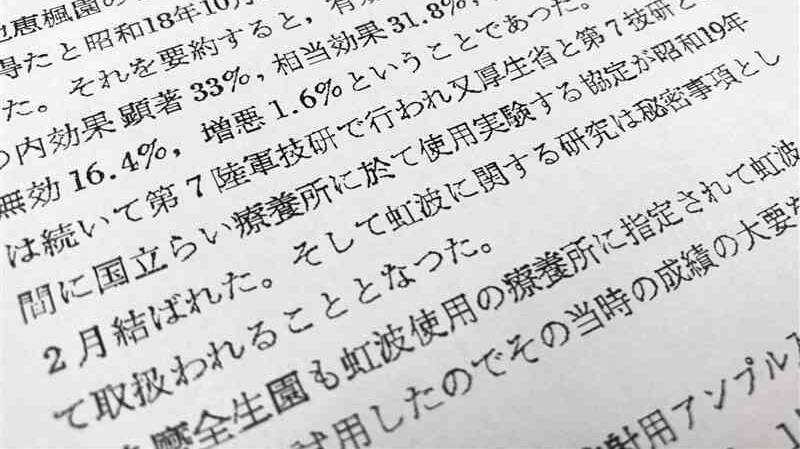 恵楓園の
得たと昭和18年10月
た。それを要約すると,有
の内効果顕著33%,相当効果31.8%,
無効16.4%,増悪1.6%ということであつた。
は続いて第7陸軍技研で行われ又厚生省と第7技研と
間に国立らい療養所に於て使用実験する協定が昭和19年
2月結ばれた。そして虹波に関する研究は秘密事項とし
て取扱われることとなつた。
摩全生園も虹波使用の療養所に指定されて虹波
試用したのでその当時の成績の大要を
射用アンプル